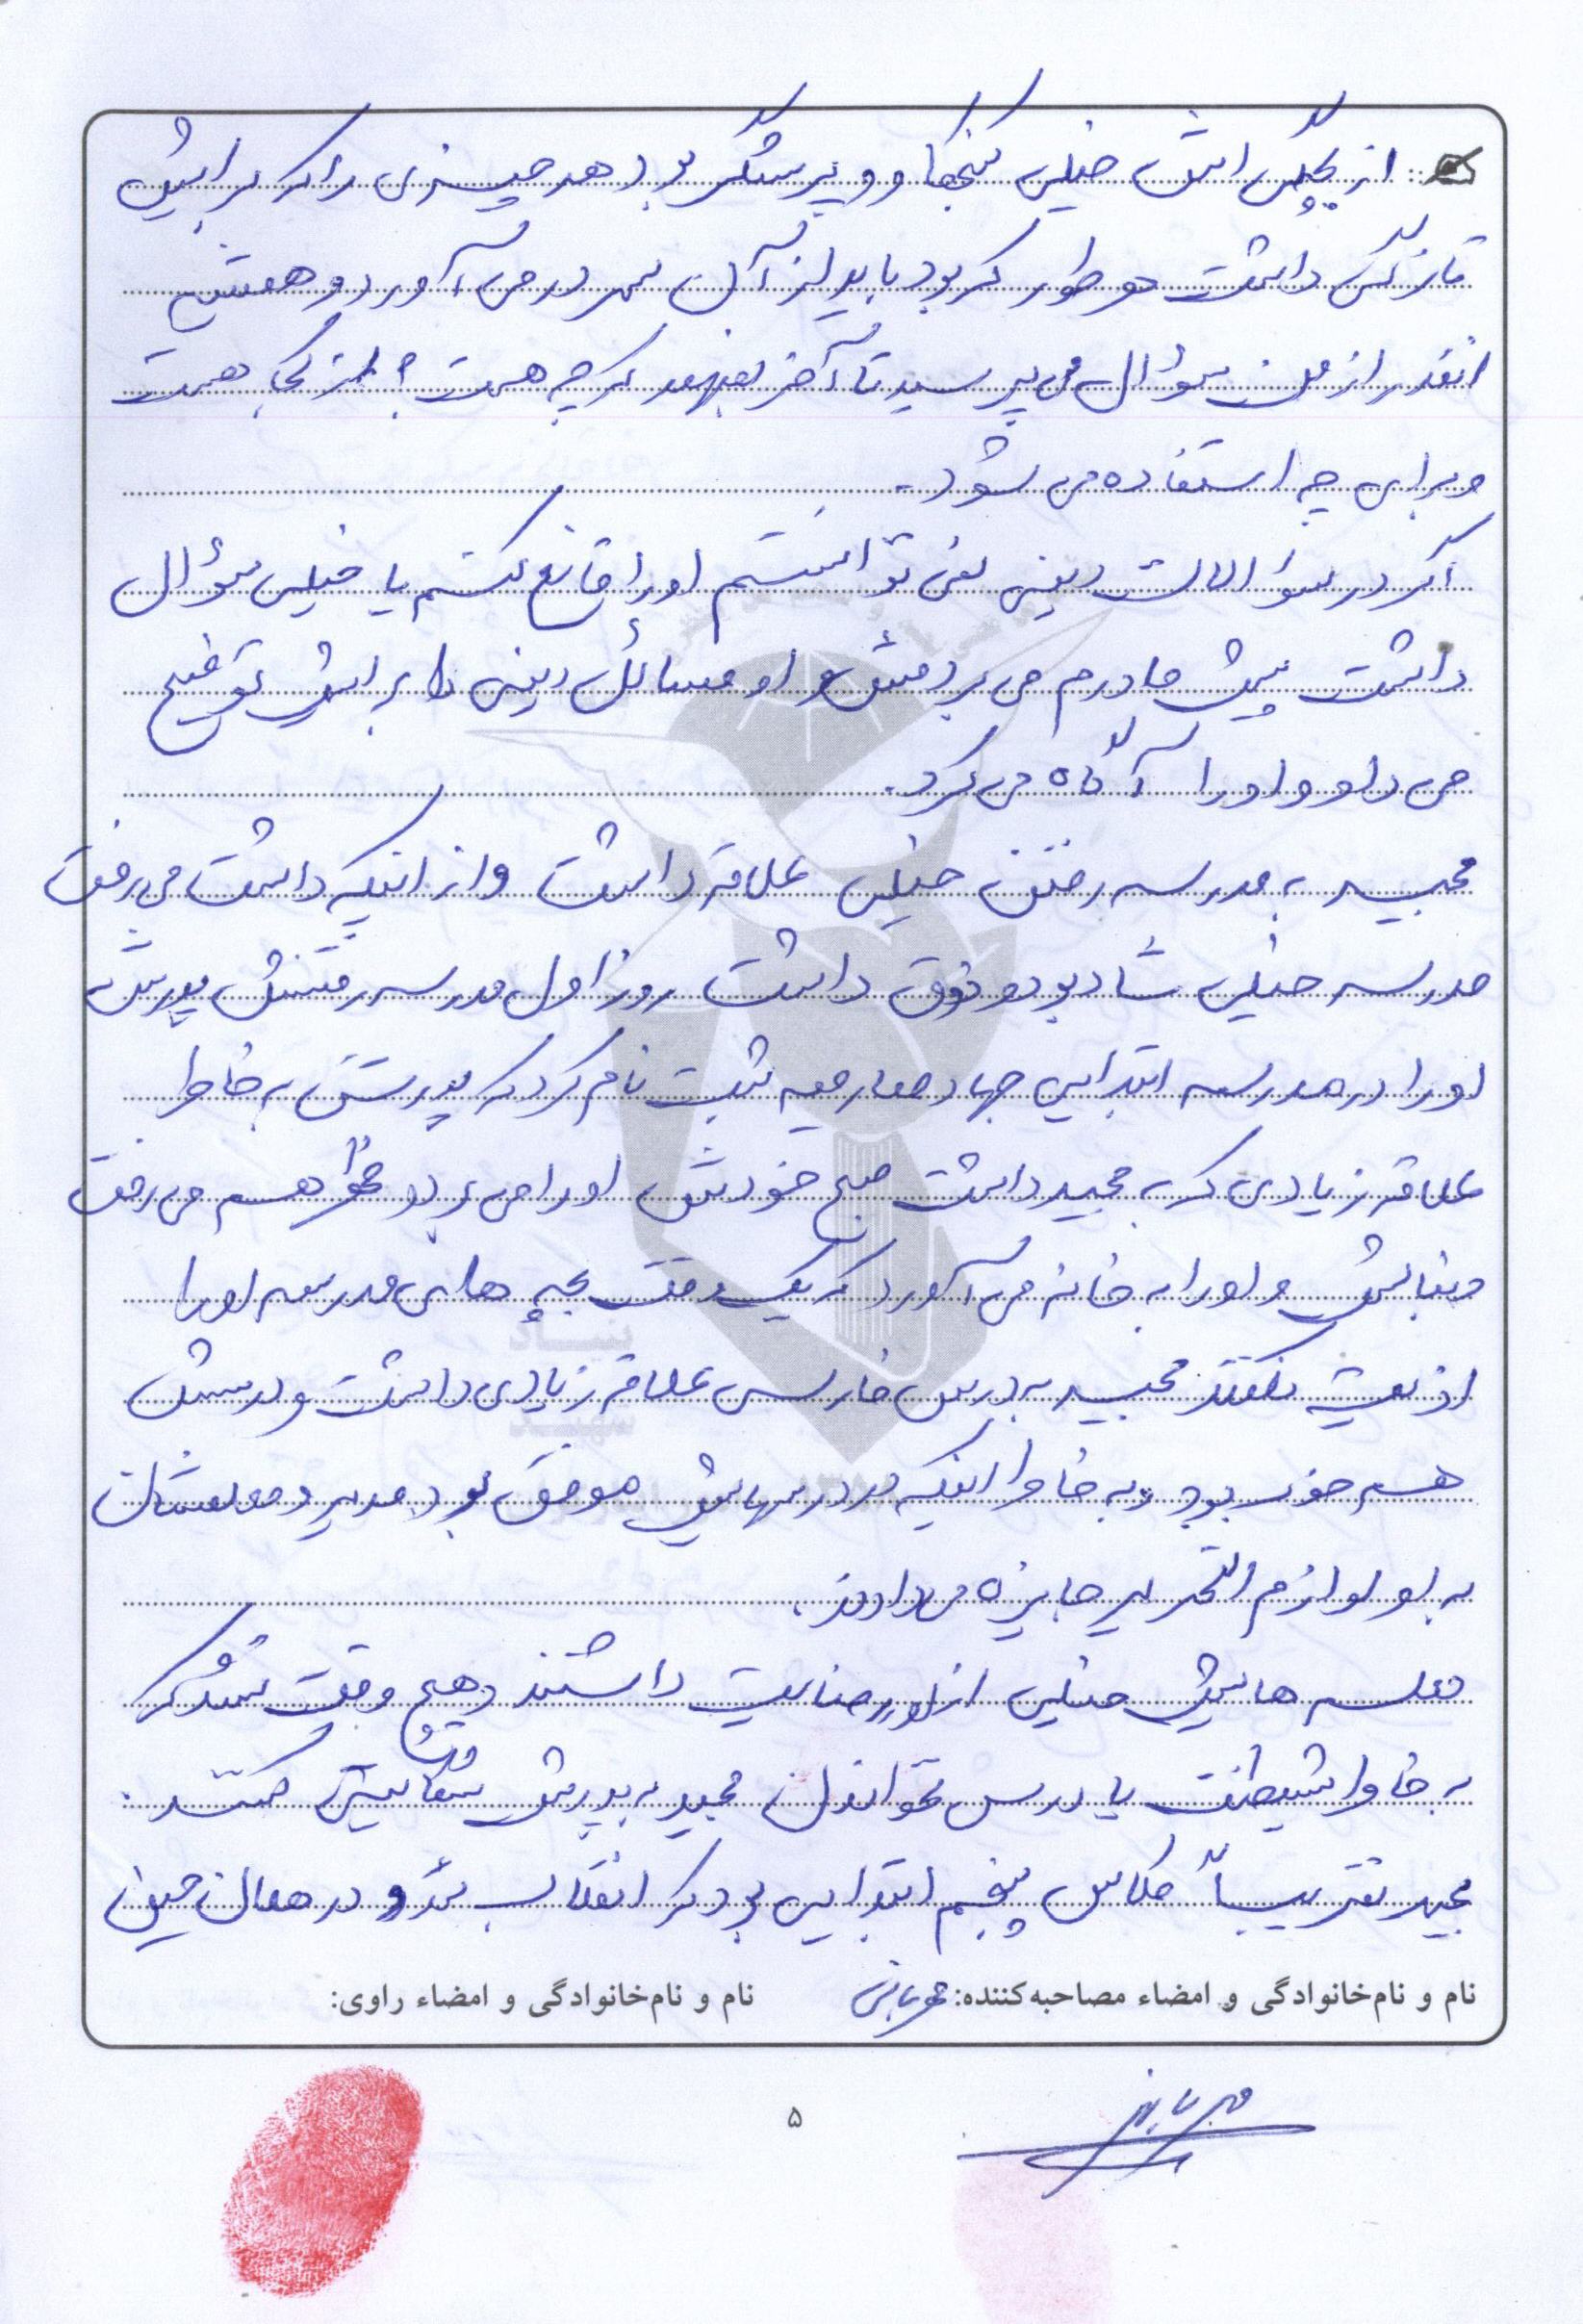 از بچگی اش خیلی کنجکاو و پرسشگر بود هر چیزی را که برایش
تازگی داشت هر طور که بود باید از آن سر در می آورد و همش
انقدر از من سؤال می پرسید تا آخر بفهمد که چه هست؟ از کجا هست
و برای چه استفاده می شود.
اگر در سؤالات دینی نمی توانستم او را قانع کنم یا خیلی سؤال
داشت پیش مادرم می بردمش و او مسائل دینی را برایش توضیح
می داد و او را آگاه می کرد.
مجید به مدرسه رفتن خیلی علاقه داشت و از اینکه داشت می رفت
مدرسه خیلی شاد بود و ذوق داشت روز اول مدرسه رفتنش پدرش
او را در مدرسه ابتدایی چهارده معصوم ثبت نام کرد که پدرش به خاطر
علاقه زیادی که به مجید داشت صبح خودش او را می برد و ظهر هم می رفت
دنبالش و او را به خانه می آورد که یک وقت بچه های مدرسه او را
اذیت نکنند مجید به درس فارسی علاقه زیادی داشت و درسش
هم خوب بود و به خاطر اینکه در درسهایش موفق بود مدیر و معلمشان
به او لوازم التحریر جایزه می دادند.
معلم هایش خیلی از او رضایت داشتند و هیچ وقت نشد که
به خاطر شیطنت یا درس نخواندن مجید به پدرش شکایتی کنند.
مجید تقریباً کلاس پنجم ابتدایی بود که انقلاب شد و در همان حین
نام و نام‌خانوادگی و امضاء مصاحبه‌کننده:
نام و نام‌خانوادگی و امضاء راوی:
۵